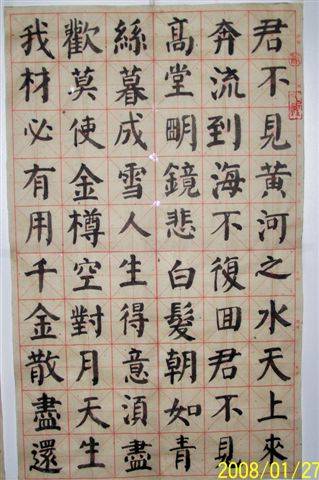 君不見黃河之水天上來
奔流到海不復回君不見
高堂明鏡悲白髮朝如青
絲暮成雪人生得意須盡
歡莫使金樽空對月天生
我材必有用千金散盡還
2008/01/27